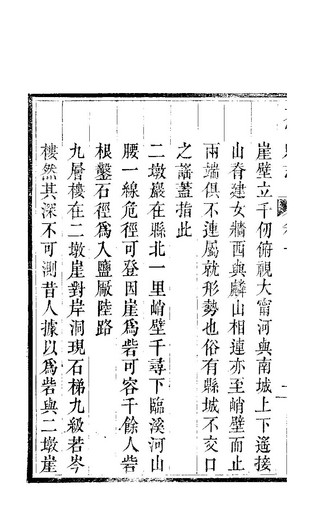 崖壁立千仞俯視大甯河與南城上下遙接
山脊建女牆西與麟山相連亦至峭壁而止
兩端俱不連屬就形勢也俗有縣城不交口
之謠蓋指此
二墩巖在縣北一里峭壁千尋下臨溪河山
腰一線危徑可登因崖爲砦可容千餘人砦
根鑿石徑爲入鹽厰陸路
九層樓在二墩崖對岸洞現石梯九級若岑
樓然其深不可測昔人據以爲砦與二墩崖